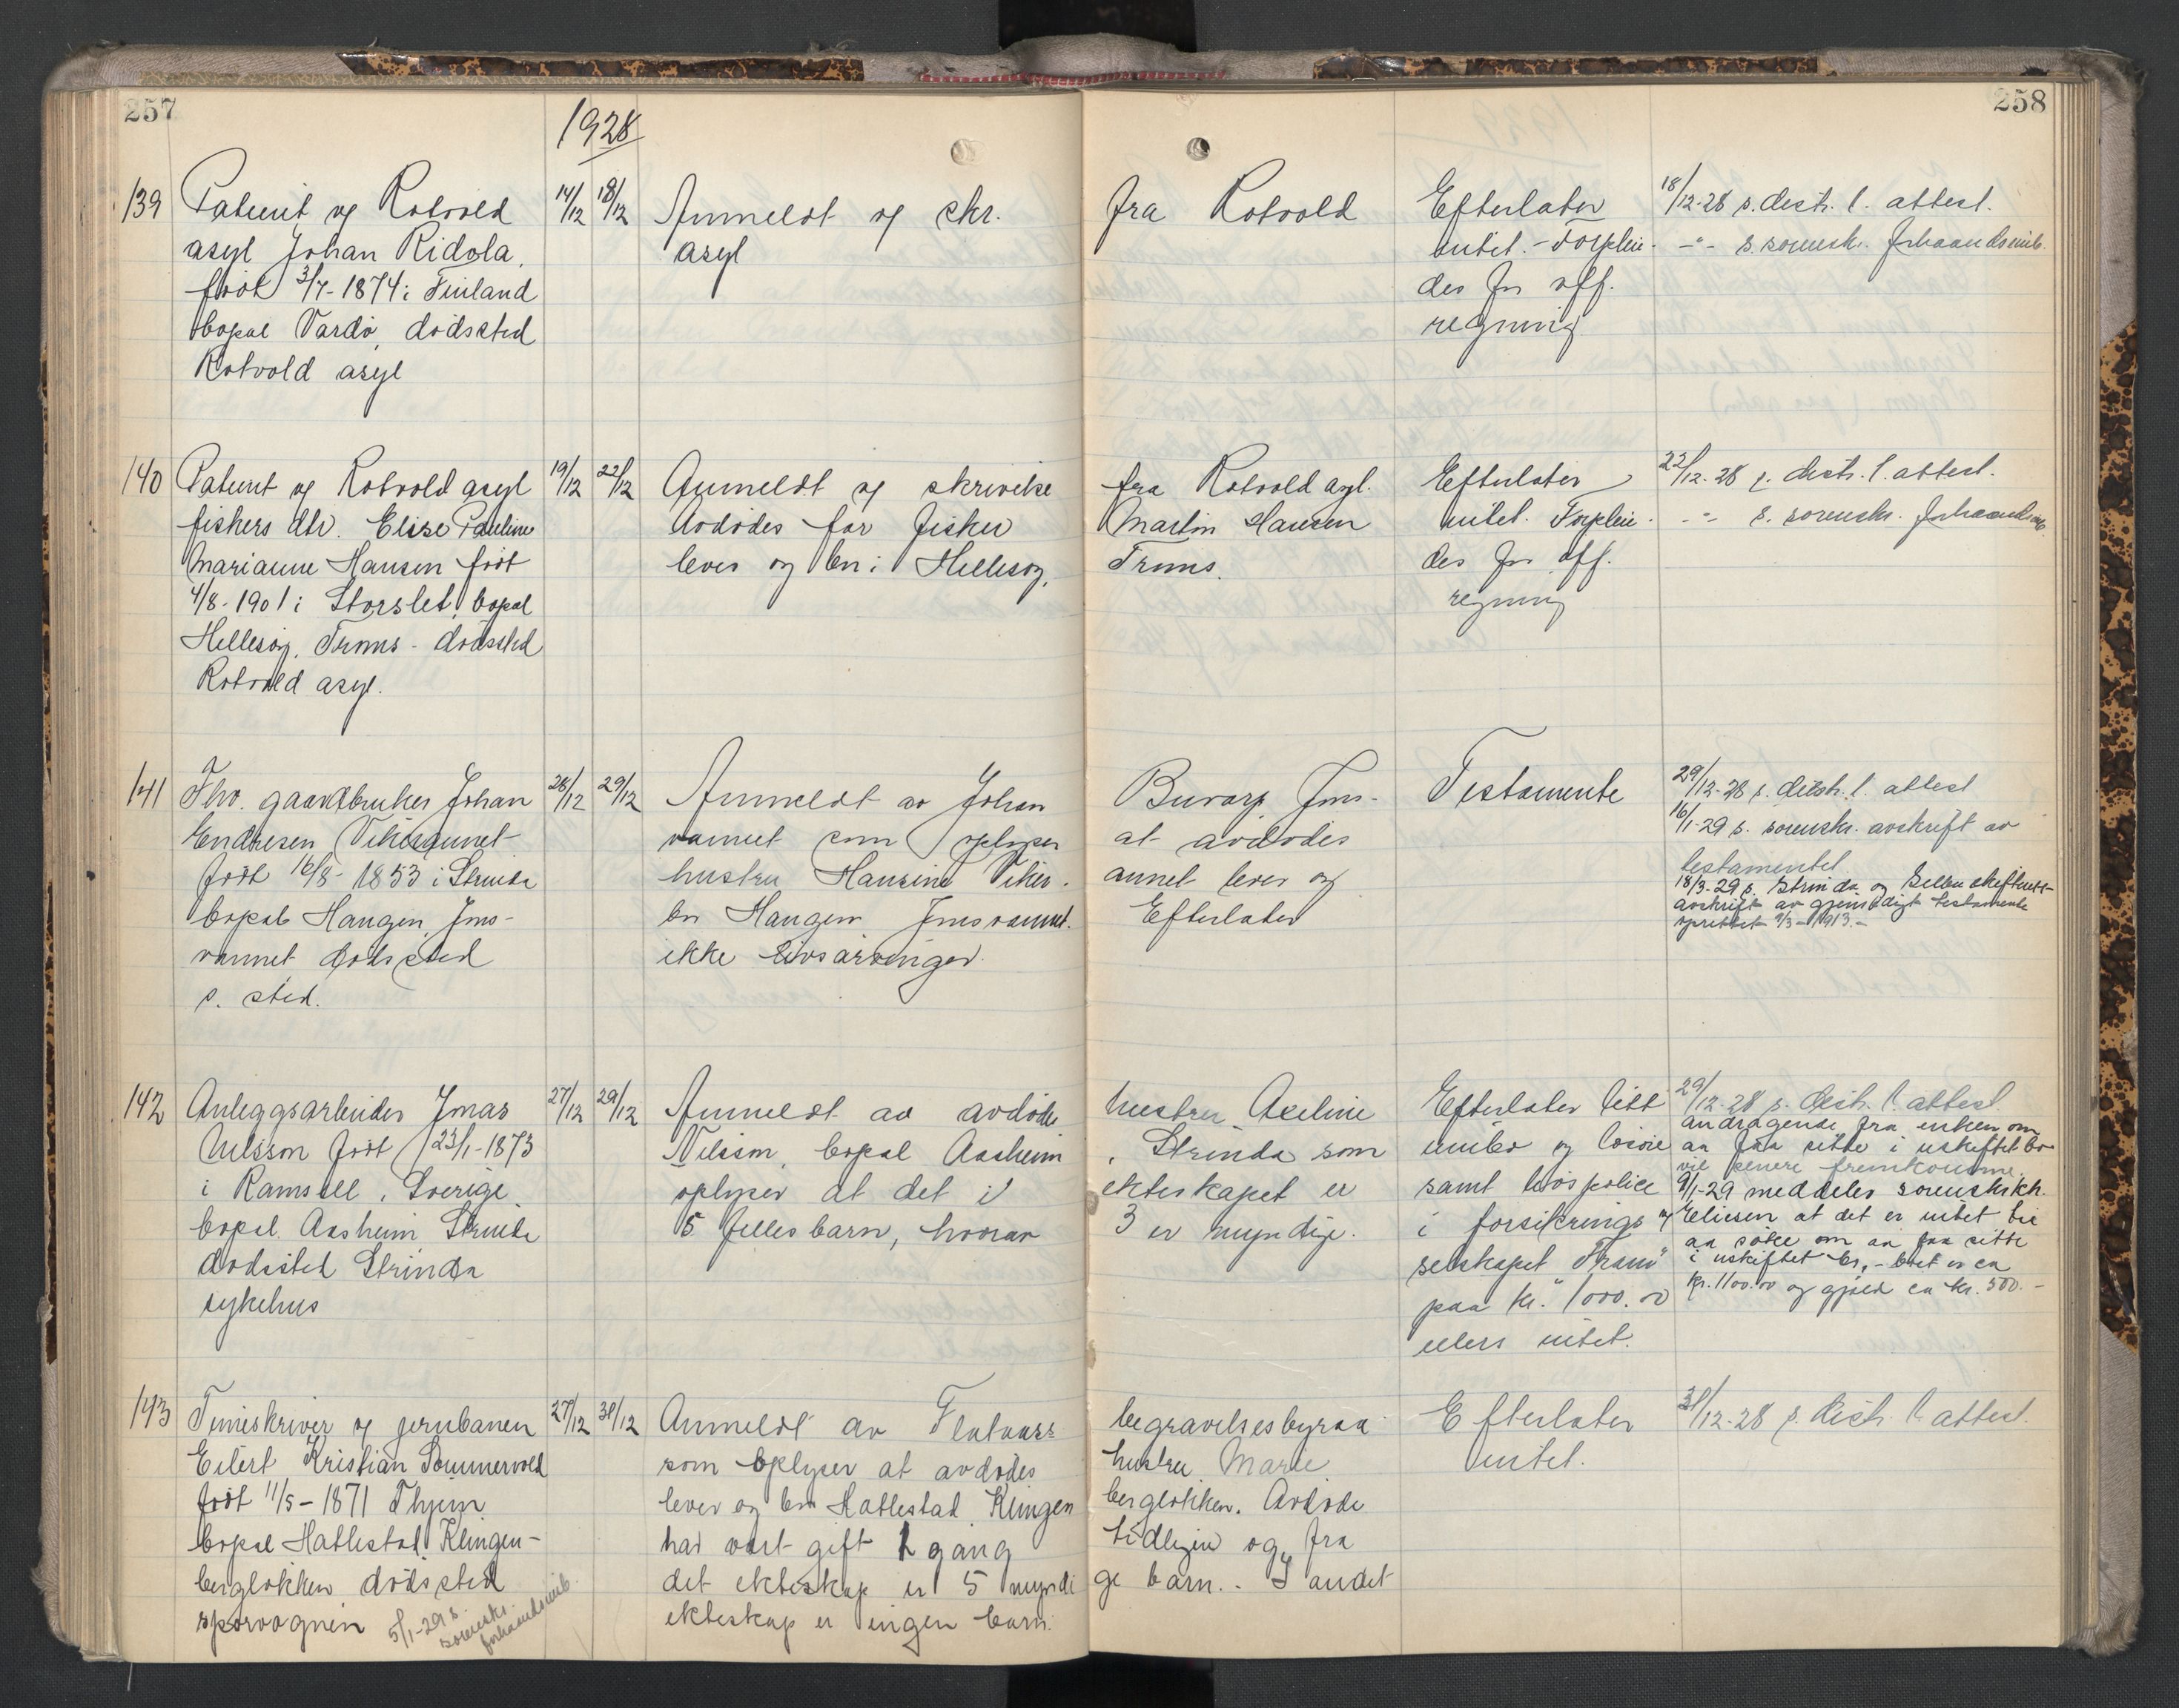 257
1928
258
139
Patient og Rotvold
asyl Johan Ridola,
født 3/7-1874 i Finland
bopæl Vardø, dødssted
Rotvold asyl
14/12 18/12
Anmeldt og skr. fra Rotvold
asyl
Efterlater
intet. - Forplei-
des for off.
regning
18/12-28 s. distr. l. attest.
-"- s. sorenskr. forhaandsmb.
140
Patient og Rotvold asyl
fiskers dtr. Elise Pauline
Marianne Hansen født
4/8-1901 i Storslet, bopæl
Hellesøy, Troms - dødssted
Rotvold asyl.
19/12 22/12
Anmeldt og skrivelse fra Rotvold asyl.
Avdødes far fisker Martin Hansen
lever og bor i Hellesøy, Troms.
Efterlater
intet. Forplei-
des for off.
regning
22/12-28 s. distr. l. attest.
-"- s. sorenskr. forhaandsmb.
141
Fhv. gaardbruker Johan
Endresen Vikesaunet
født 16/8-1853 i Strinda
bopæl Haugen, Jons-
vannet dødssted
s. sted.
28/12 29/12
Anmeldt av Johan Buvarp, Jons-
vannet som oplyser at avdødes
hustru Hansine Vike- saunet lever og
bor Haugen Jonsvannet. Efterlater
ikke livsarvinger.
Testamente
29/12-28 s. distr. l. attest
16/1-29 s. sorenskr. avskrift av
testamentet
18/3-29 s. Strinda og Selbu skifterett-
avskrift av gjensidigt testamente
oprettet 9/3-1913.-
142
Anleggsarbeider Jonas
Nilsson født 23/1-1873
i Ramsele, Sverige
bopæl Aasheim Strinda
dødssted Strinda
sykehus
27/12 29/12
Anmeldt av avdøde hustru Axeline
Nilsson, bopæl Aasheim, Strinda som
oplyser at det i ekteskapet er
5 fellesbarn, hvorav 3 er myndige.
Efterlater litt
innbo og løsøre
samt livspolice
i forsikrings
selskapet "Fram"
paa kr. 1000.00
ellers intet.
29/12-28 s. distr. l. attest
andragende fra enken om
aa faa sitte i uskiftet bo
vil senere fremkomme.
9/1-29 meddeles sorenskr.
Eliesen at det er intet bo
aa søke om aa faa sitte
i uskiftet bo, - boet er ca
kr. 1100.00 og gjæld ca kr. 500.-
143
Timeskriver og jernbanen
Eilert Kristian Sommervold
født 11/5-1871 Thjem
bopæl Hallestad Klingen-
bergløkken dødssted
sporvognen
5/1-29 s.
sorenskr.
forhaandsmb.
27/12 31/12
Anmeldt av Flataas begravelsesbyraa
som oplyser at avdødes hustru Marie
lever og bor Hallestad Klingen bergløkken. Avdøde
har vært gift 1 gang tidligere og fra
det ekteskap er 5 myndi ge barn. - I andet
ekteskap er ingen barn.
Efterlater
intet.
31/12-28 s. distr. l. attest.